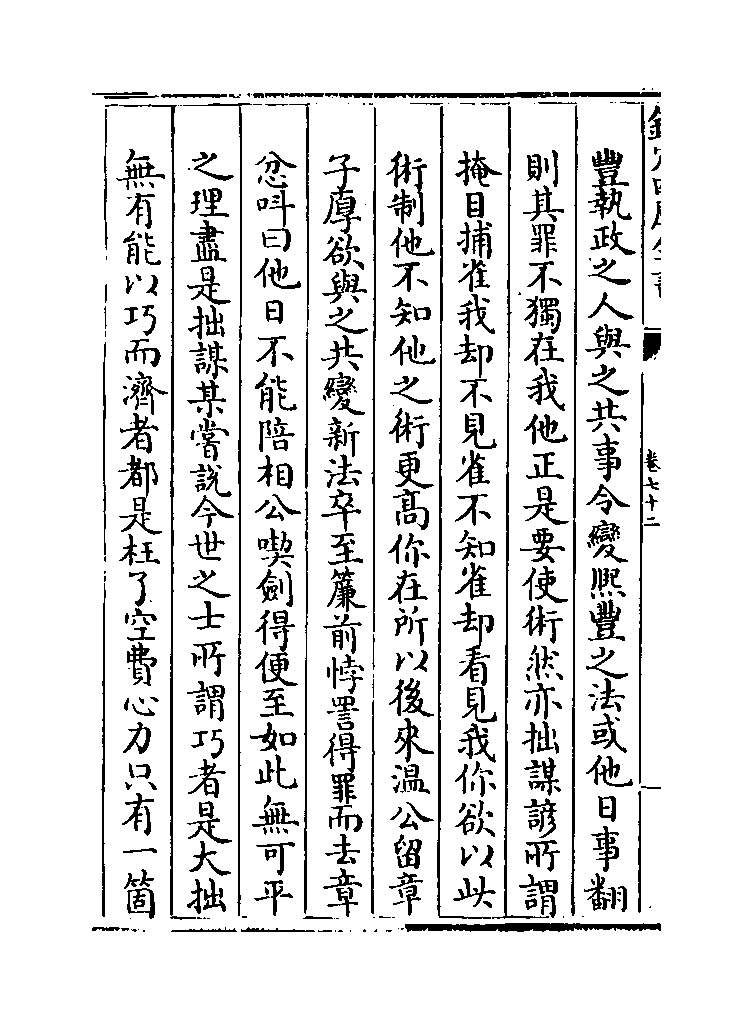 卷七十二
豐執政之人與之共事令變熙豐之法或他日事翻
則其罪不獨在我他正是要使術然亦拙謀諺所謂
掩目捕雀我却不見雀不知雀却看見我你欲以此
術制他不知他之術更高你在所以後來温公留章
子厚欲與之共變新法卒至簾前悖詈得罪而去章
忿呌曰他日不能陪相公喫劍得便至如此無可平
之理盡是拙謀某嘗説今世之士所謂巧者是大拙
無有能以巧而濟者都是枉了空費心力只有一箇